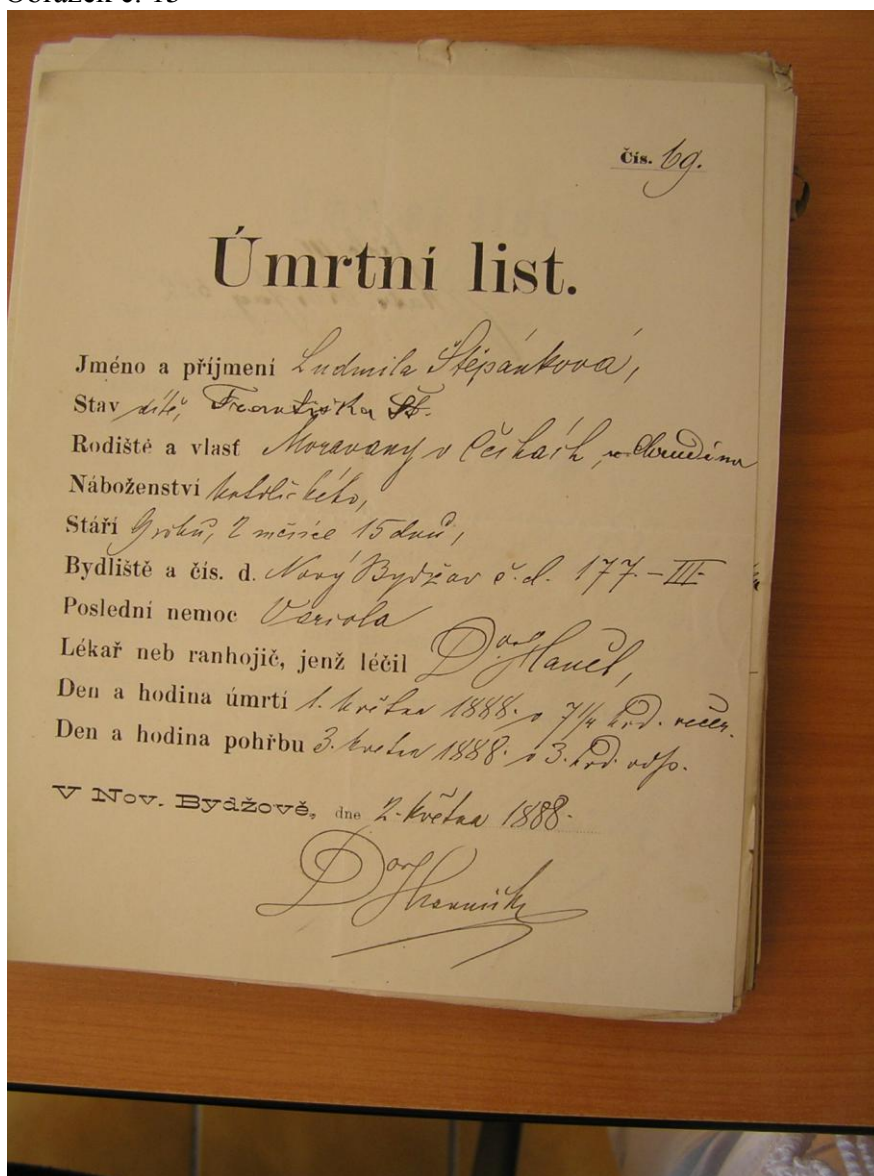 Čís. 69.
Úmrtní list.
Jméno a příjmení Ludmila Štěpánková,
Stav dítě, Františka Št.
Rodiště a vlasť Moravany v Čechách,
Náboženství katolického,
Stáří 9 roků, 2 měsíce 15 dnů,
Bydliště a čís. d. Nový Bydžov č. d. 177.-III-
Poslední nemoc Variola
Lékař neb ranhojič, jenž léčil
Den a hodina úmrtí 1. května 1888. o 7 1/4 hod. večer.
Den a hodina pohřbu 3. května 1888. o 3. hod. odp.
V Nov. Bydžově, dne 2. května 1888.